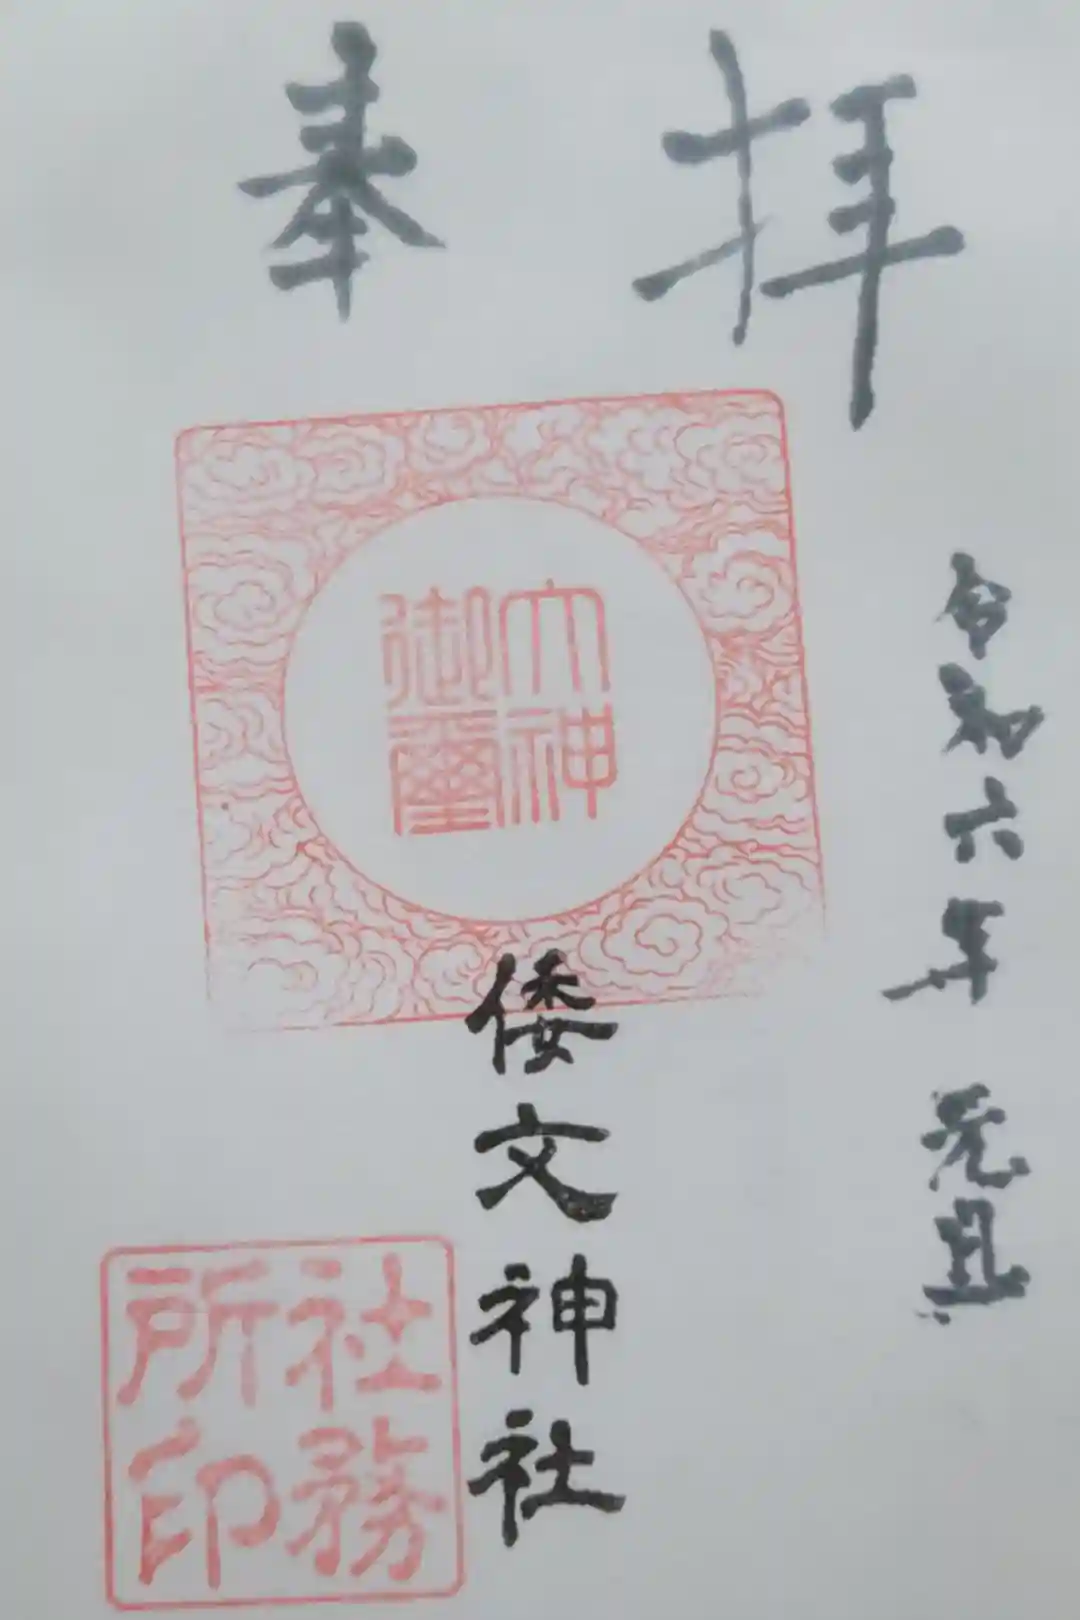 奉拝
大神
御璽
倭文神社
令和六年 元旦
社務
所印